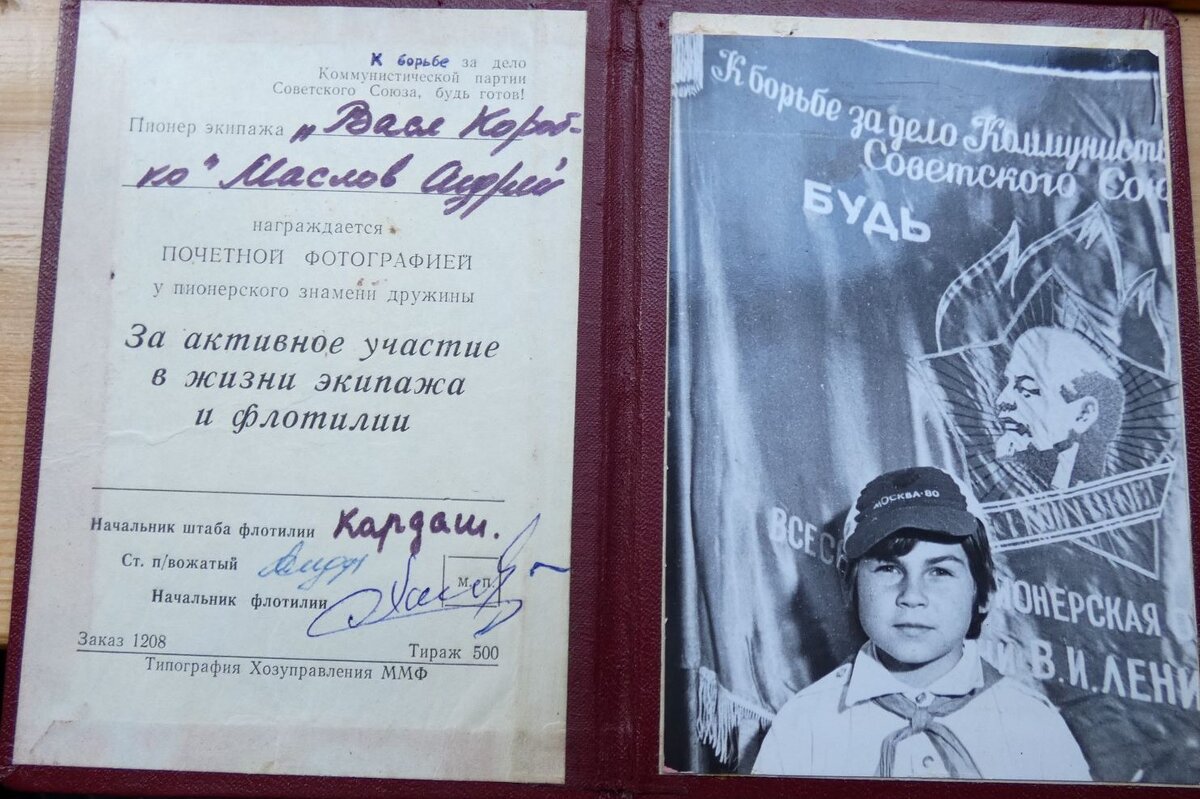 К борьбе за дело
Коммунистической партии
Советского Союза, будь готов!
Пионер экипажа „Васи Короб-
ко" Маслов Андрей
награждается
ПОЧЕТНОЙ ФОТОГРАФИЕЙ
у пионерского знамени дружины
За активное участие
в жизни экипажа
и флотилии
Начальник штаба флотилии Кардаш.
Ст. п/вожатый
Начальник флотилии
м. п.
Заказ 1208 Тираж 500
Типография Хозуправления ММФ
К борьбе за дело Коммунисти
Советского Сою
БУДЬ
МОСКВА-80
ВСЕС
ПИОНЕРСКАЯ О
В.И.ЛЕНИ